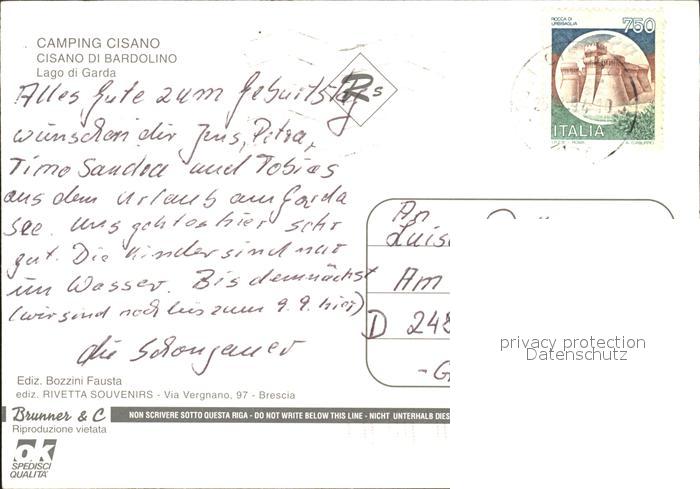 CAMPING CISANO
CISANO DI BARDOLINO
Lago di Garda
Alles Gute zum Geburtstag
wünschen dir Jens, Petra,
Timo Sandra und Tobias
aus dem Urlaub am Garda
See. Uns geht es hier sehr
gut. Die Kinder sind nur
im Wasser. Bis demnächst
(wir sind noch bis zum 9.9. hier)
die Schongauer
Ediz. Bozzini Fausta
ediz. RIVETTA SOUVENIRS - Via Vergnano, 97 - Brescia
Brunner & C
Riproduzione vietata
NON SCRIVERE SOTTO QUESTA RIGA - DO NOT WRITE BELOW THIS LINE - NICHT UNTERHALB DIES
ok
SPEDISCI
QUALITÀ
R s
ROCCA DI
URBISAGLIA
750
ITALIA
An
Luis
Am
D 248
- G
privacy protection
Datenschutz